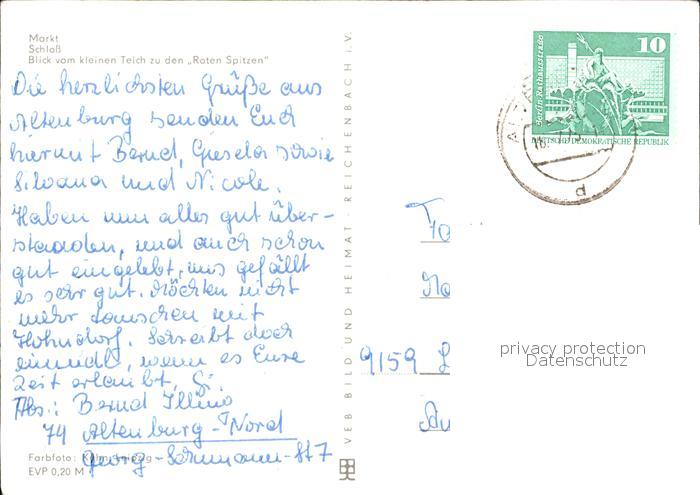 Markt
Schloß
Blick vom kleinen Teich zu den „Roten Spitzen"
Die herzlichsten Grüße aus
Altenburg senden Euch
hiermit Bernd, Gisela sowie
Silvana und Nicole.
Haben nun alles gut über-
standen, und auch schon
gut eingelebt, uns gefällt
es sehr gut. Möchten nicht
mehr tauschen mit
Hohndorf. Schreibt doch
einmal, wenn es Eure
Zeit erlaubt,
Abs.: Bernd
74 Altenburg-Nord
Georg-Schumann-Str 7
Farbfoto: Kühn, Leipzig
EVP 0,20 M
VEB BILD UND HEIMAT · REICHENBACH i. V.
10
Berlin · Rathausstraße
DEUTSCHE DEMOKRATISCHE REPUBLIK
d
9159 L
privacy protection
Datenschutz